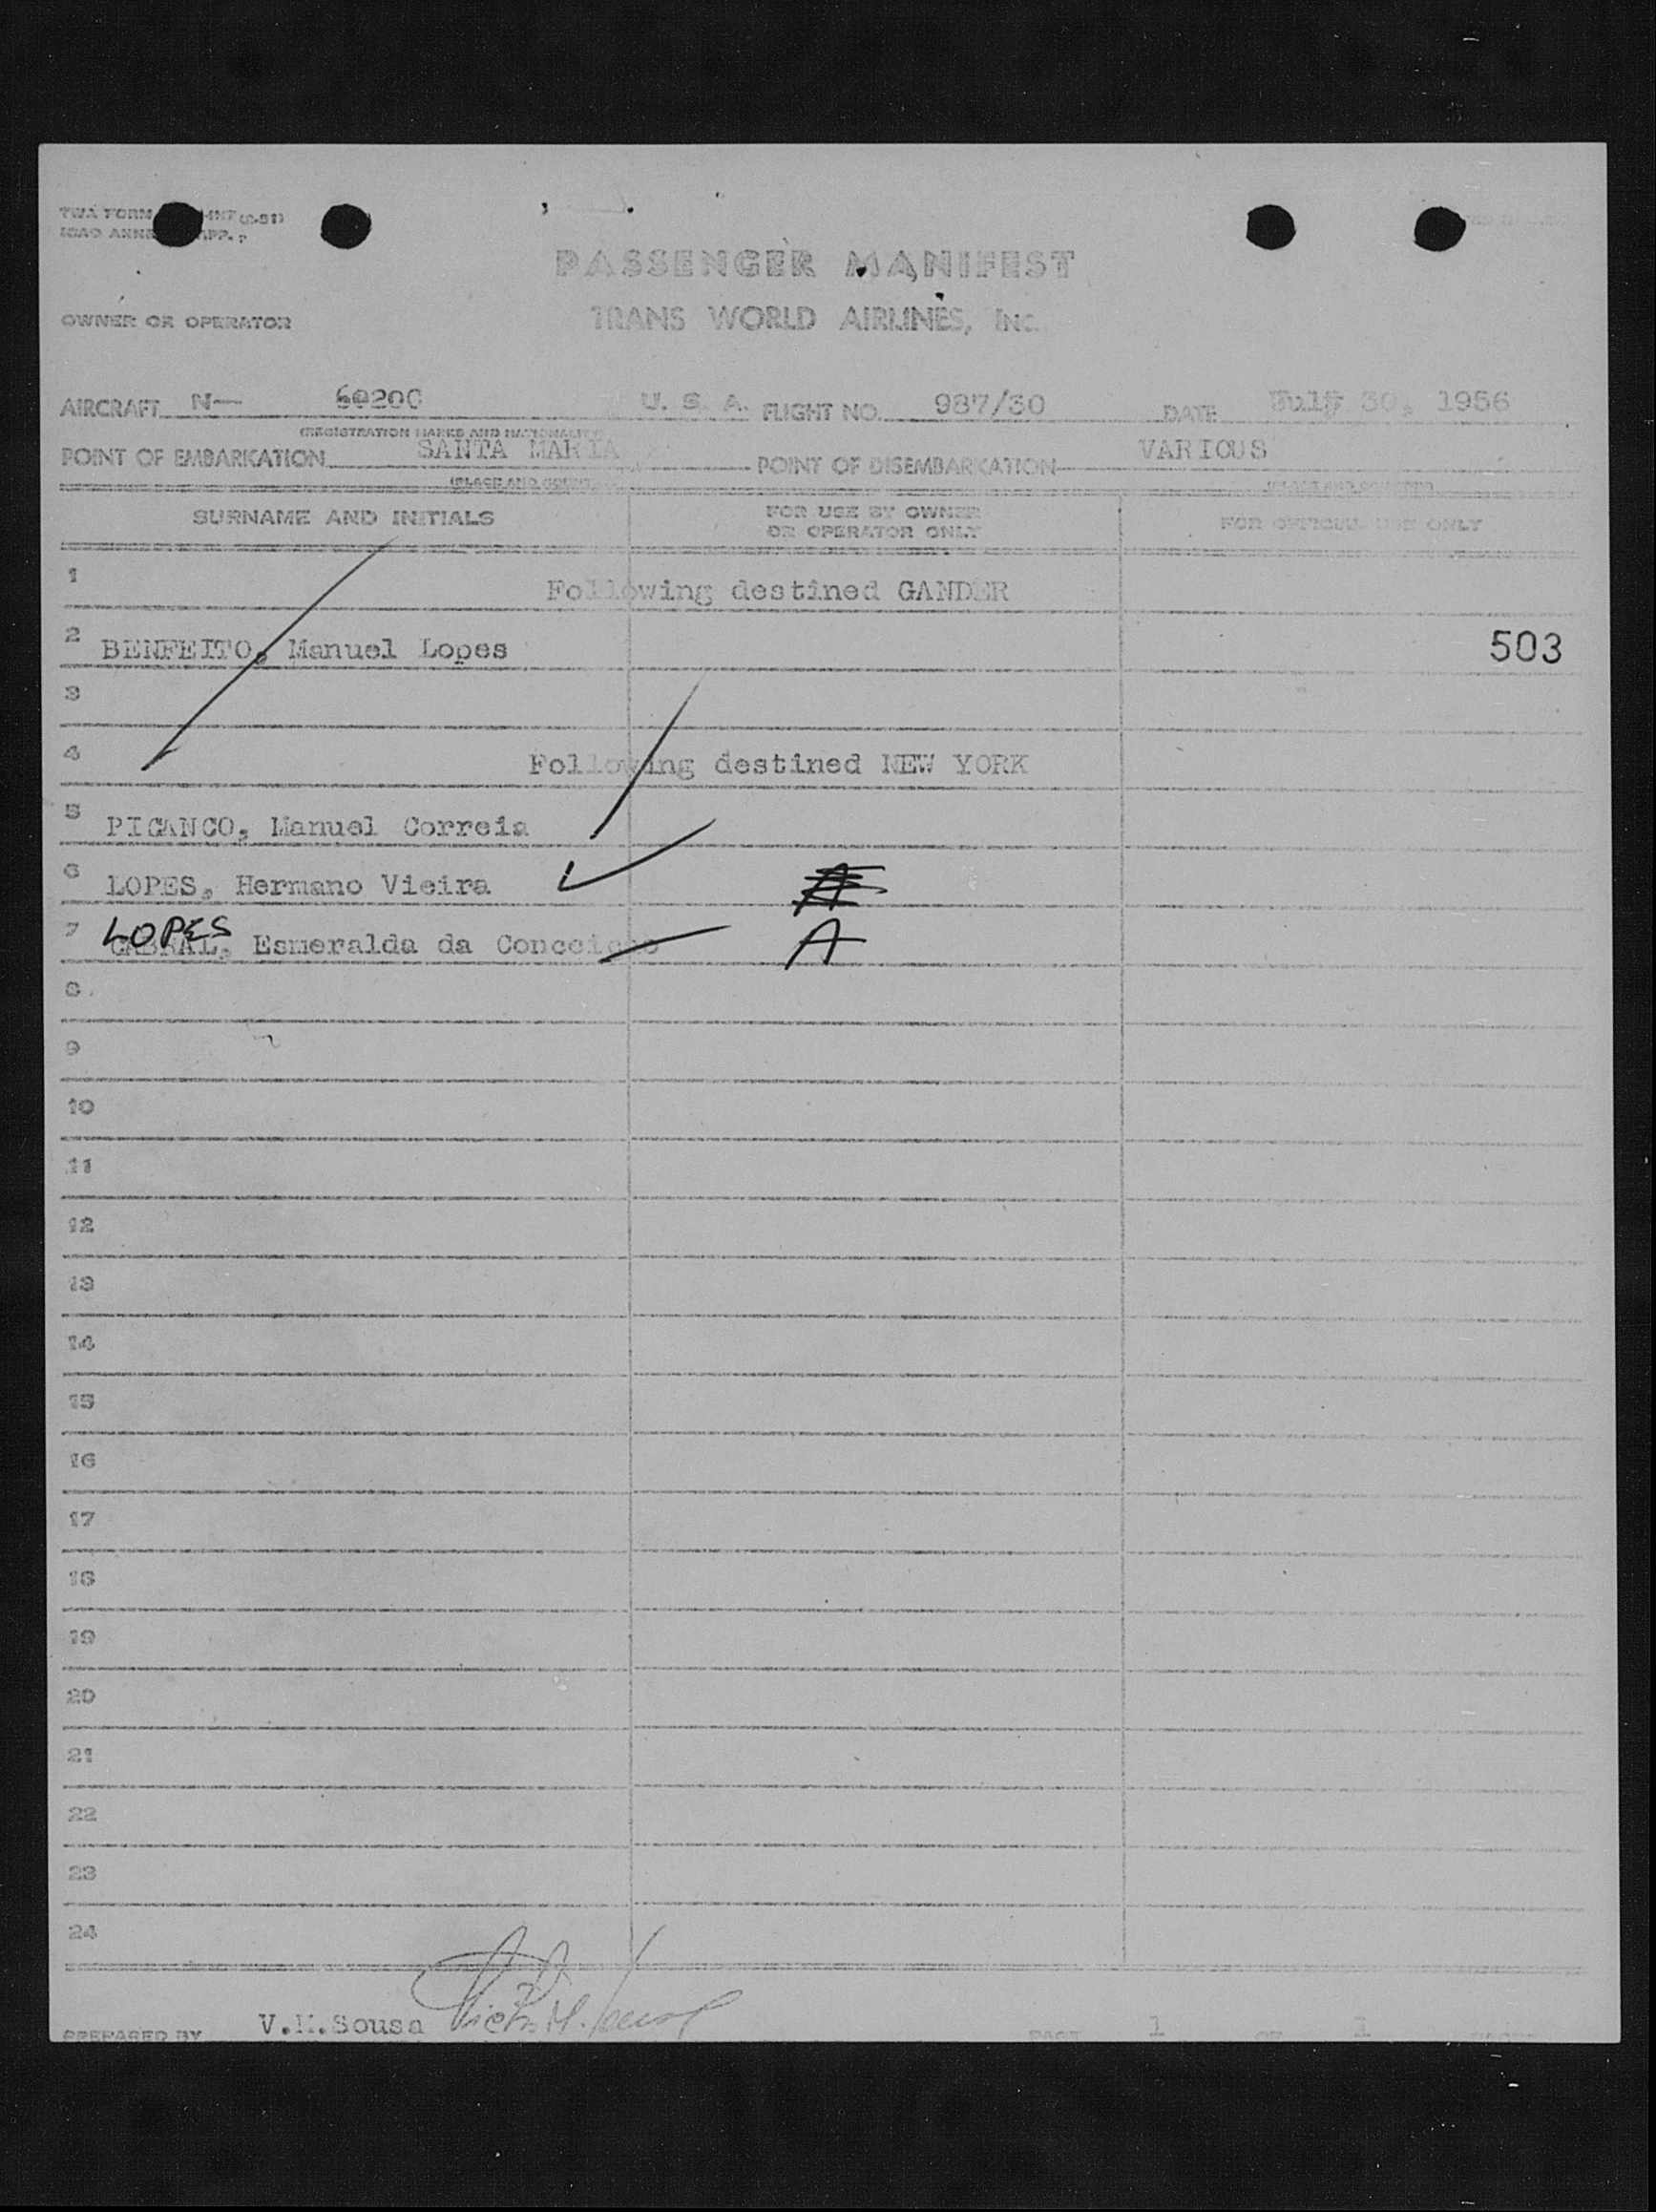 TWA FORM
ICAO ANNE APP.
PASSENGER MANIFEST
OWNER OR OPERATOR TRANS WORLD AIRLINES, INC.
AIRCRAFT N— 6020C U. S. A. FLIGHT NO. 987/30 DATE July 30, 1956
(REGISTRATION MARKS AND NATIONALITY)
POINT OF EMBARKATION SANTA MARIA POINT OF DISEMBARKATION VARIOUS
(PLACE AND COUNTRY) (PLACE AND COUNTRY)
SURNAME AND INITIALS FOR USE BY OWNER OR OPERATOR ONLY FOR OFFICIAL USE ONLY
1 Following destined GANDER
2 BENFEITO, Manuel Lopes 503
3
4 Following destined NEW YORK
5 PICANCO, Manuel Correia
6 LOPES, Hermano Vieira A
7 LOPES CABRAL, Esmeralda da Conceicao A
8
9
10
11
12
13
14
15
16
17
18
19
20
21
22
23
24
PREPARED BY V.M.Sousa Victor M. Sousa PAGE 1 OF 1 PAGES